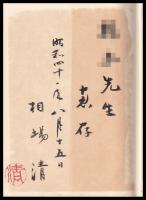 先生
恵存
昭和四十一年八月十五日
相場清
清